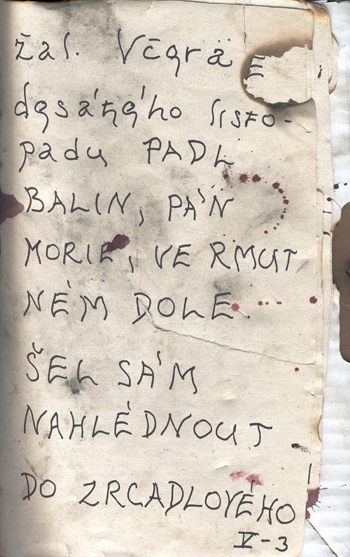 žal. Včera
desátého listo-
padu PADL
BALIN, PÁN
MORIE, VE RMUT
NÉM DOLE.
ŠEL SÁM
NAHLÉDNOUT
DO ZRCADLOVÉHO
V-3